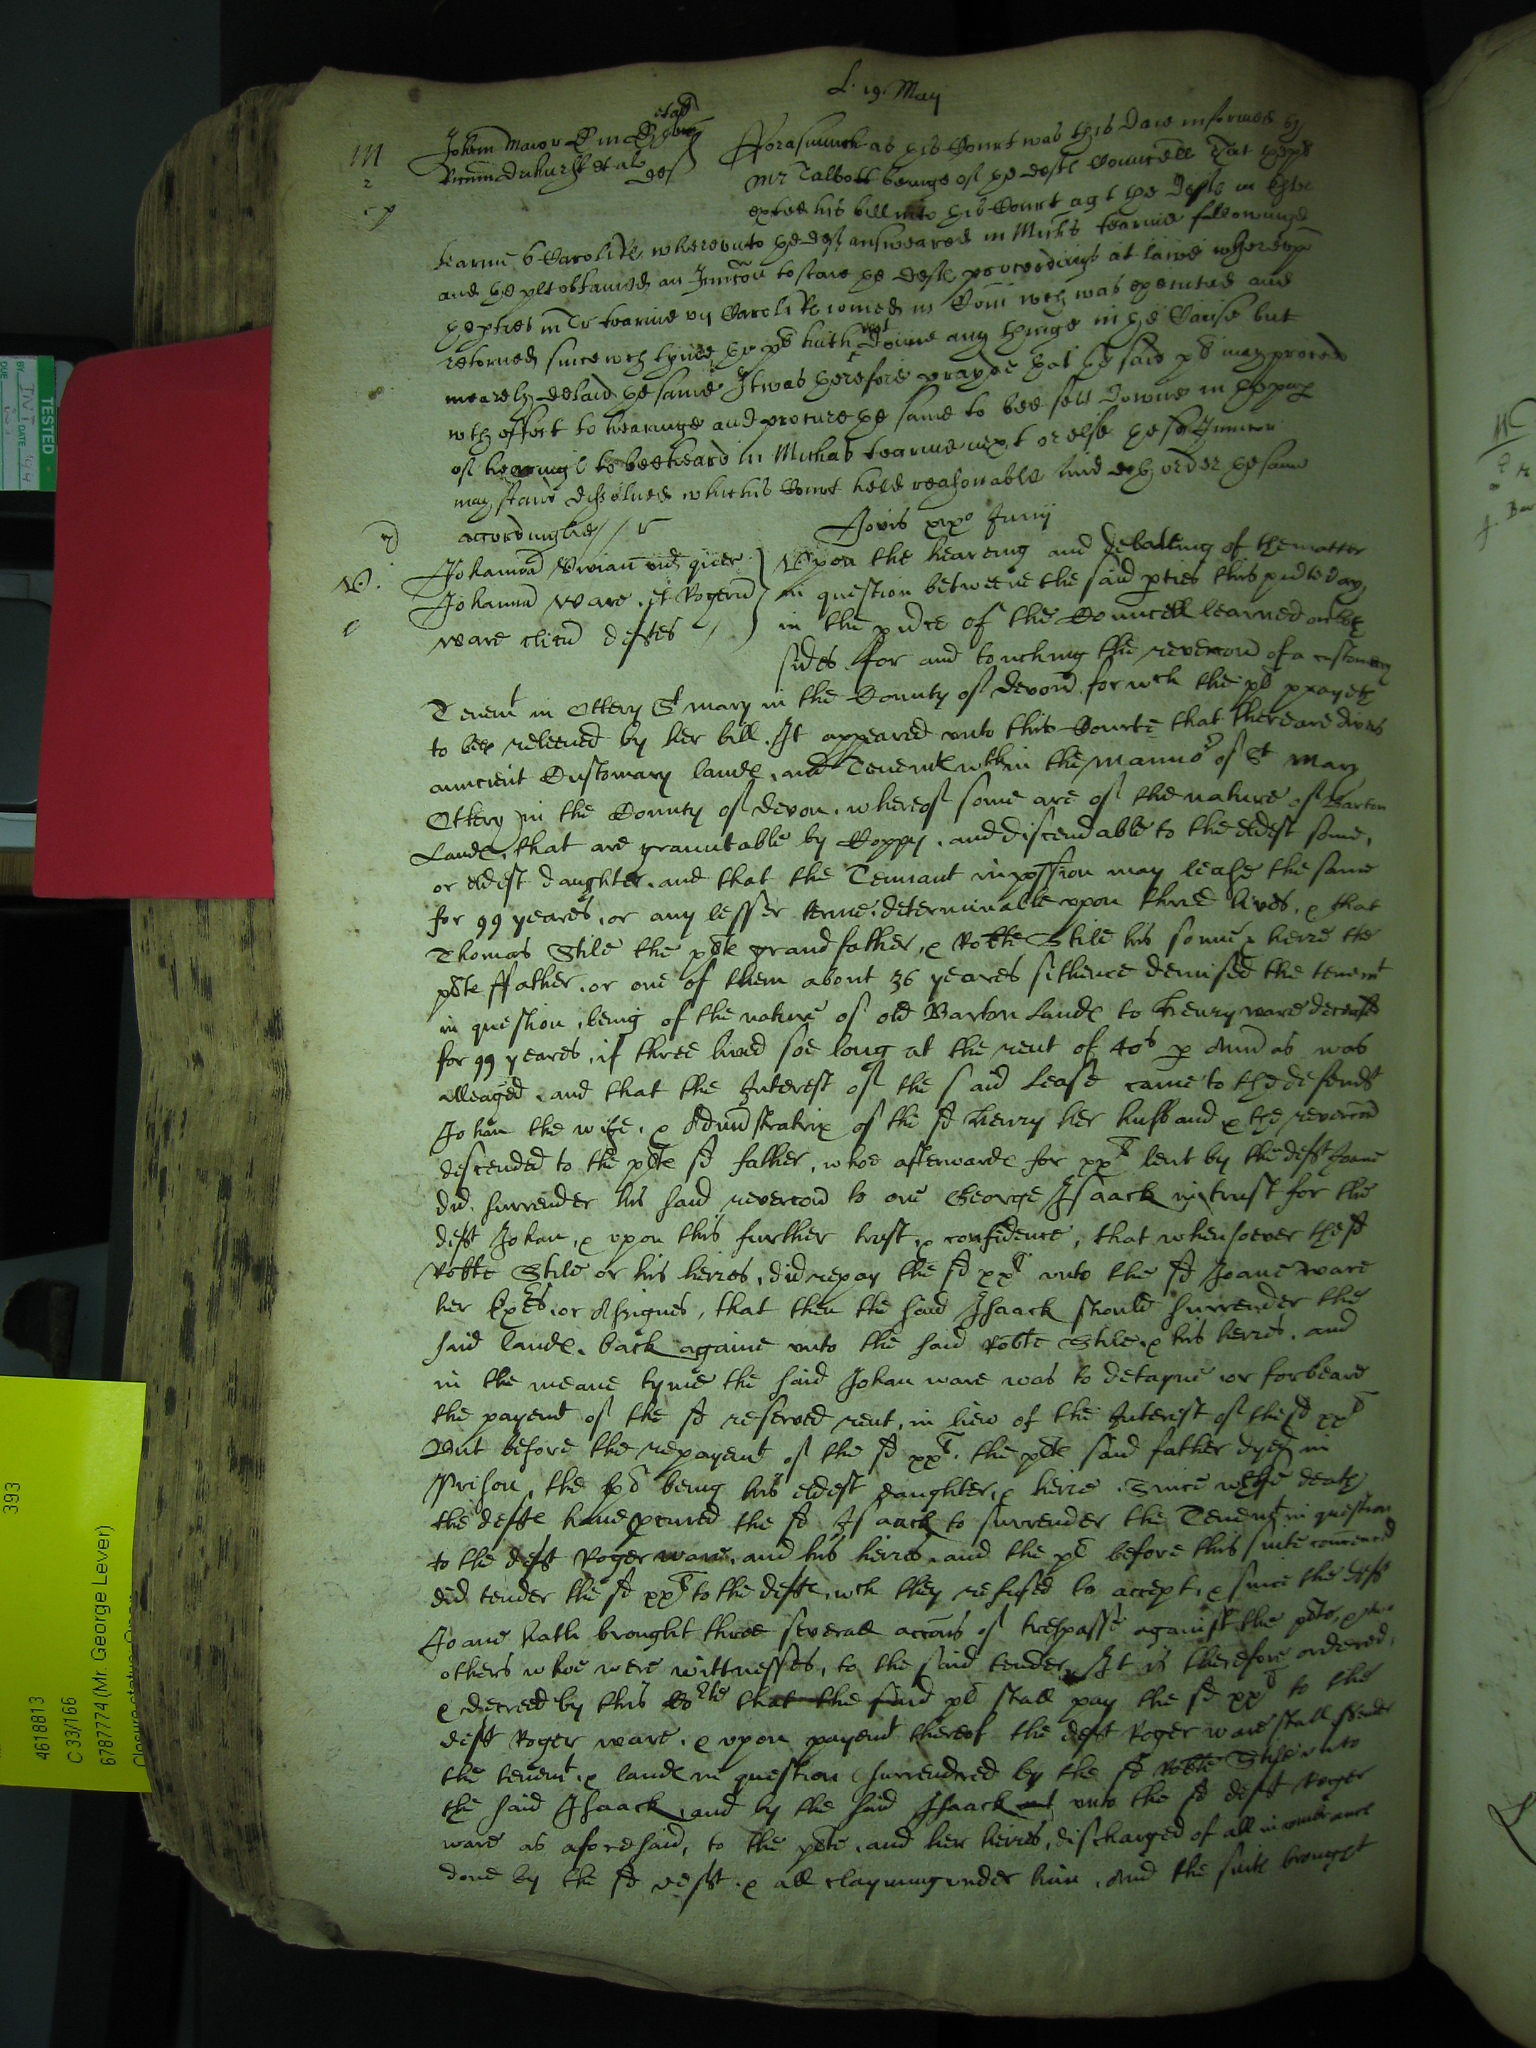 L. 19. May
M
2
Johem Maior
Forasmuch as this Court was this daie informed by
Mr Talbott beinge of the defts Councell That the pt
exhted his bill into this Court agt the Defts in Ester
tearme 6 Caroli Re whereunto the deft answeared in Michs tearme followinge
and the plt obtained an Iniuncon to staie the defts proceedings at lawe whereupon
the pties in Tr tearme vij Caroli Re ioined in Com wch was executed and
retorned since wch tyme the pt hath not donne any thinge in the Cause but
meerely delaied the same It was therefore prayed that the said pt may proceed
wth effect to hearinge and procure the same to bee sett downe in the pap
of hearings to bee heard in Michas tearme next or else the sd Iniuncon
may stand dissolued which this Court held reasonable and doth order the same
accordinglie
Jovis xixo Junij
Johanna Vivian vid quer
Johanna Ware et Rogerus
Ware clicus deftes
Vpon the heareing and debateing of the matter
in question betweene the said pties this pnte day
in the pnce of the Councell learned on both
sides for and touching the revercon of a customary
Tenemt in Ottery St Mary in the County of Devon for wch the plt prayeth
to bee releeued by her bill. It appeared vnto this Courte that there are divers
auncient Customary lands, and Tenemts wthin the mannor of St Mary
Ottery in the County of Devon, whereof some are of the nature of Barton
Lands, that are grauntable by Coppy, and discendable to the eldest sonne,
or eldest daughter, and that the Tennant in possion may lease the same
for 99 yeares, or any lesser terme, determinable vpon three lives, & that
Thomas Stile the plte grandfather, & Robte Stile his sonne & heire the
plte ffather, or one of them about 36 yeares sithence demised the tenemt
in question, being of the nature of old Barton Lands to Henry Ware deceased
for 99 yeares, if three lived soe long at the rent of 40s p Ann as was
alleaged, and that the Interest of the said Lease came to the defendt
Johan the wife, & Administratrix of the sd Henry her husband & the revercon
descended to the plte sd father, whoe afterwards for xxl lent by the deft Joane
did surrender his said revercon to one George Isaack in trust for the
deft Johan, & vpon this further trust, & confidence, that whensoever the sd
Robte Stile or his heires, did repay the sd xxl vnto the sd Joane Ware
her Exrs or Assignes, that then the said Isaack should surrender the
said lands, back againe vnto the said Robte Stile, & his heires, and
in the meane tyme the said Johan Ware was to detayne or forbeare
the payemt of the sd reserved rent, in liew of the Interest of the sd xxl
But before the repayemt of the sd xxl, the plte said father dyed in
Prison, the plt being his eldest daughter, & heire. Since whose death
the defts have pcured the sd Isaack to surrender the Tenemt in question
to the deft Roger Ware, and his heires, and the plt before this suite comenced
did tender the sd xxl to the defte, wch they refused to accept, & since the deft
Joane hath brought three severall accons of trespasse against the plte, & two
others whoe were wittnesses, to the said tender. It is therefore ordered,
& decreed by this Corte that the said plt shall pay the sd xxl to the
deft Roger Ware, & vpon payemt thereof the deft Roger Ware shall surrender
the tenemt & lands in question surrendred by the sd Robte Stile vnto
the said Isaack, and by the said Isaack vnto the sd deft Roger
Ware as aforesaid, to the plte, and her heires, discharged of all incumbrances
done by the sd deft & all clayming vnder him, And the suite brought
TESTED
BY
DATE
DUE
393
4618813
C 33/166
6787774 (Mr. George Lever)